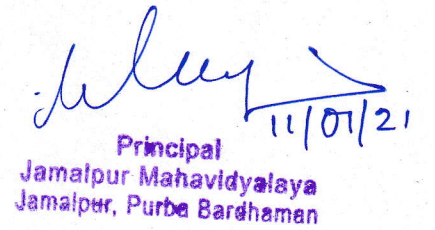 11/01/21
Principal
Jamalpur Mahavidyalaya
Jamalpur, Purba Bardhaman